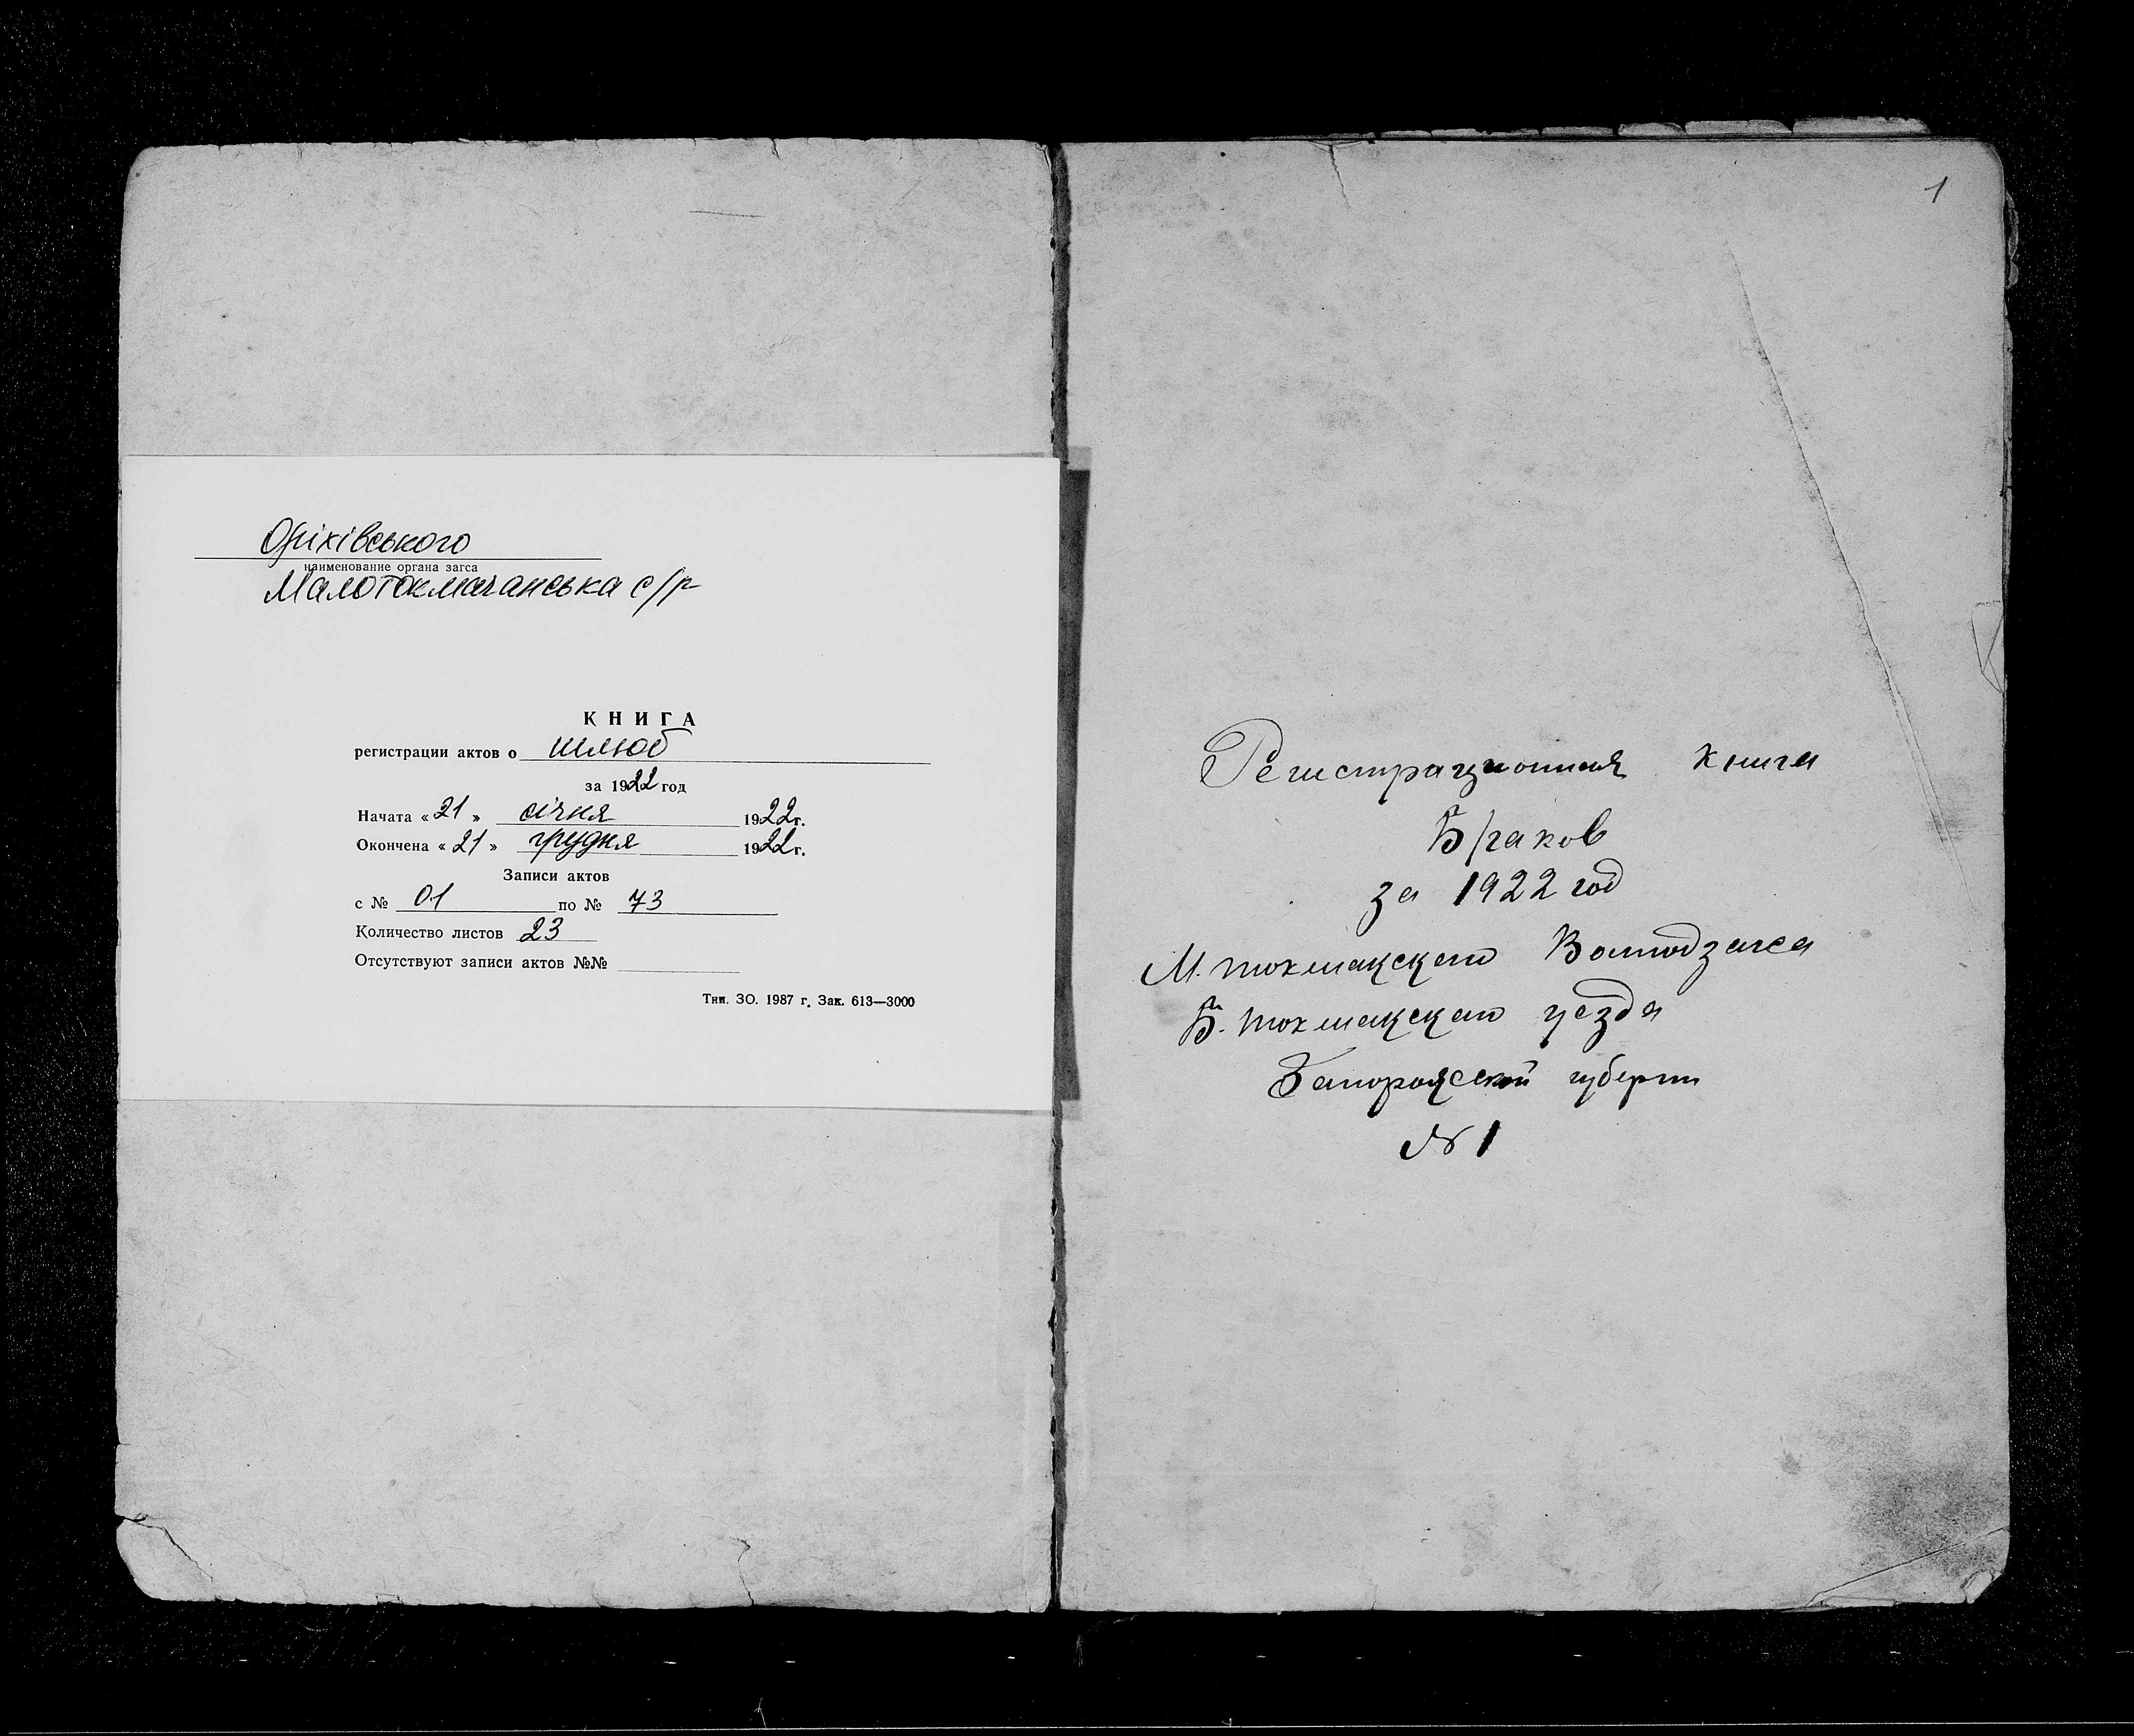 Оріхівського
наименование органа загса
Малотокмачанська с/р
КНИГА
регистрации актов о шлюб
за 1922 год
Начата «21» січня 1922 г.
Окончена «21» грудня 1922 г.
Записи актов
с № 01 по № 73
Количество листов 23
Отсутствуют записи актов №№
Тип. ЗО. 1987 г. Зак. 613—3000
1
Регистрационная книга
Браков
за 1922 год
М. токмакскаго Волподзагса
Б. токмакскаго уезда
Запорожской губерни
№ 1